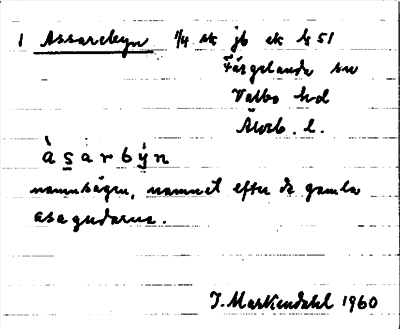 1 Assarebyn 1/4 sk jb ek b 51
Färgelanda sn
Valbo hd
Älvsb. l.
àsarbýn
namnfrågen, namnet efter de gamla
asagudarna.
J. Markendahl 1960